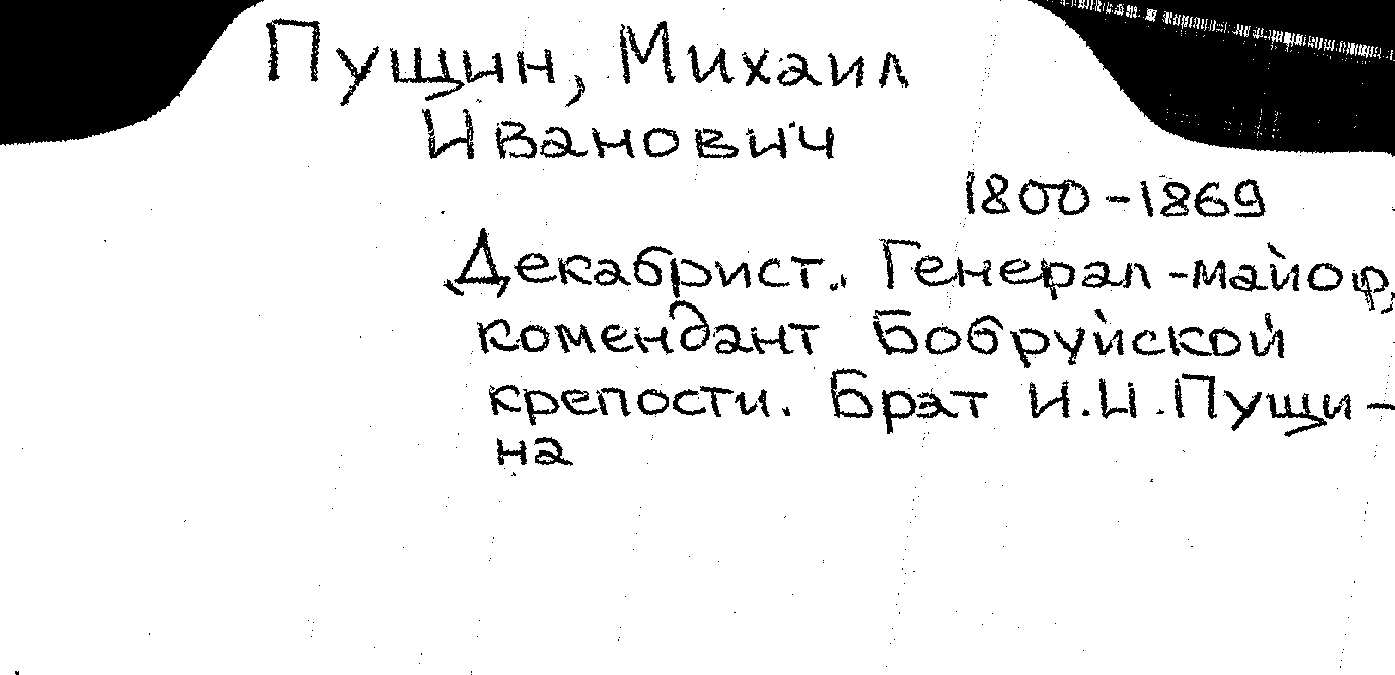 Пущин, Михаил
Иванович
1800-1869
Декабрист. Генерал-майор,
комендант Бобруйской
крепости. Брат И.И.Пущи-
на